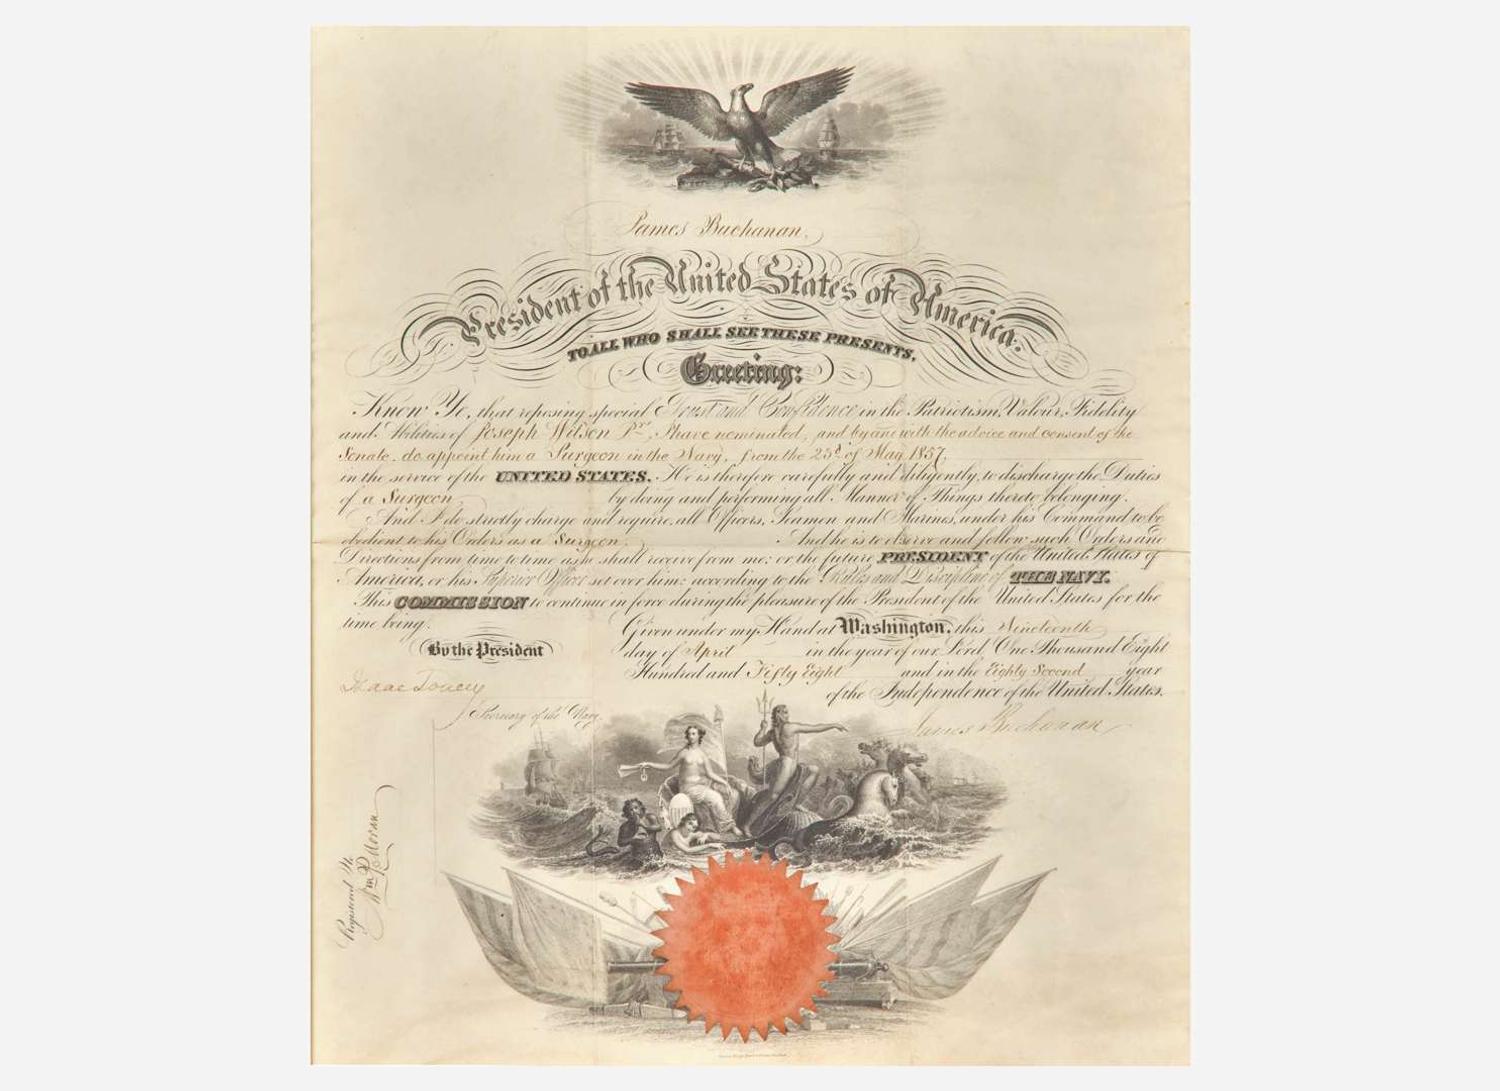 James Buchanan,
President of the United States of America.
TO ALL WHO SHALL SEE THESE PRESENTS,
Greeting:
Know Ye, that reposing special Trust and Confidence in the Patriotism, Valour, Fidelity
and Abilities of Joseph Wilson Jr., I have nominated, and by and with the advice and consent of the
Senate, do appoint him a Surgeon in the Navy, from the 23d of May 1857,
in the service of the UNITED STATES. He is therefore carefully and diligently, to discharge the Duties
of a Surgeon by doing and performing all Manner of Things thereto belonging.
And I do strictly charge and require, all Officers, Seamen and Marines, under his Command to be
obedient to his Orders as a Surgeon. And he is to observe and follow such Orders and
Directions from time to time as he shall receive from me: or the future PRESIDENT of the United States of
America, or his Superior Officer set over him: according to the Rules and Discipline of THE NAVY.
This COMMISSION to continue in force during the pleasure of the President of the United States for the
time being.
Given under my Hand at Washington, this Nineteenth
By the President
day of April in the year of our Lord, One Thousand Eight
Hundred and Fifty Eight and in the Eighty Second year
of the Independence of the United States.
Isaac Toucey
Secretary of the Navy.
James Buchanan
Registered
Wm Moran